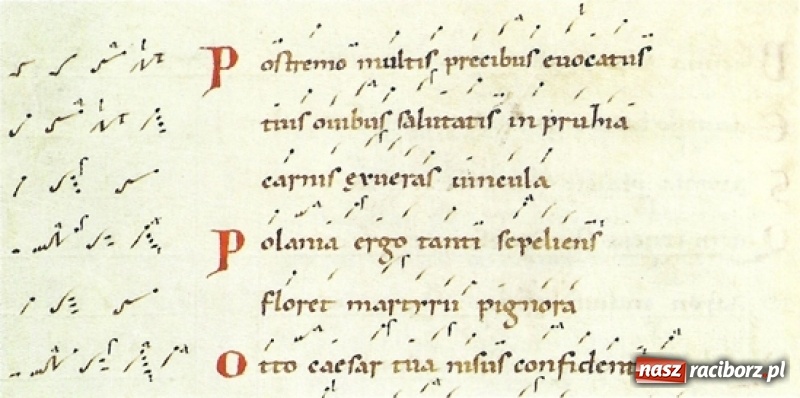 Postremo multis precibus evocatus
tius ovibus salutatis in pruhia
carnis exveras vincula
Polania ergo tanti sepeliens
floret martyru pignora
Otto caesar tua nisus confident
nasz raciborz.pl